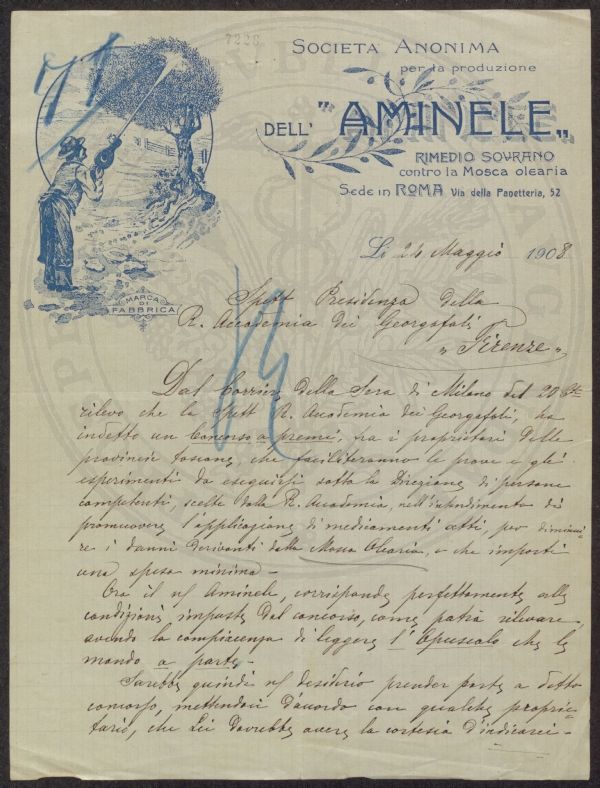 7226
SOCIETÀ ANONIMA
per la produzione
DELL' "AMINELE„
RIMEDIO SOVRANO
contro la Mosca olearia
Sede in ROMA Via della Panetteria, 52
MARCA
DI
FABBRICA
Li 26 Maggio 1908
Spett Presidenza della
R. Accademia dei Georgofoli
"Firenze"
Dal Corriere della Sera di Milano del 20 Cte
rilevo che la Spett R. Accademia dei Georgofoli, ha
indetto un Concorso a premi, fra i proprietari delle
provincie toscane, che faciliteranno le prove e gli
esperimenti da eseguirsi sotto la Direzione di persone
competenti, scelte dalla R. Accademia, nell'intendimento di
promuovere l'applicazione di medicamenti atti, per diminui-
re i danni derivanti dalla Mosca Olearia, e che importi
una spesa minima -
Ora il n/ Aminele, corrisponde perfettamente alle
condizioni imposte dal concorso, come potrà rilevare
avendo la compiacenza di leggere l'Opuscolo che le
mando a parte -
Sarebbe quindi n/ desiderio prender parte a detto
concorso, mettendoci d'accordo con qualche proprie-
tario, che Lei dovrebbe avere la cortesia d'indicarci -